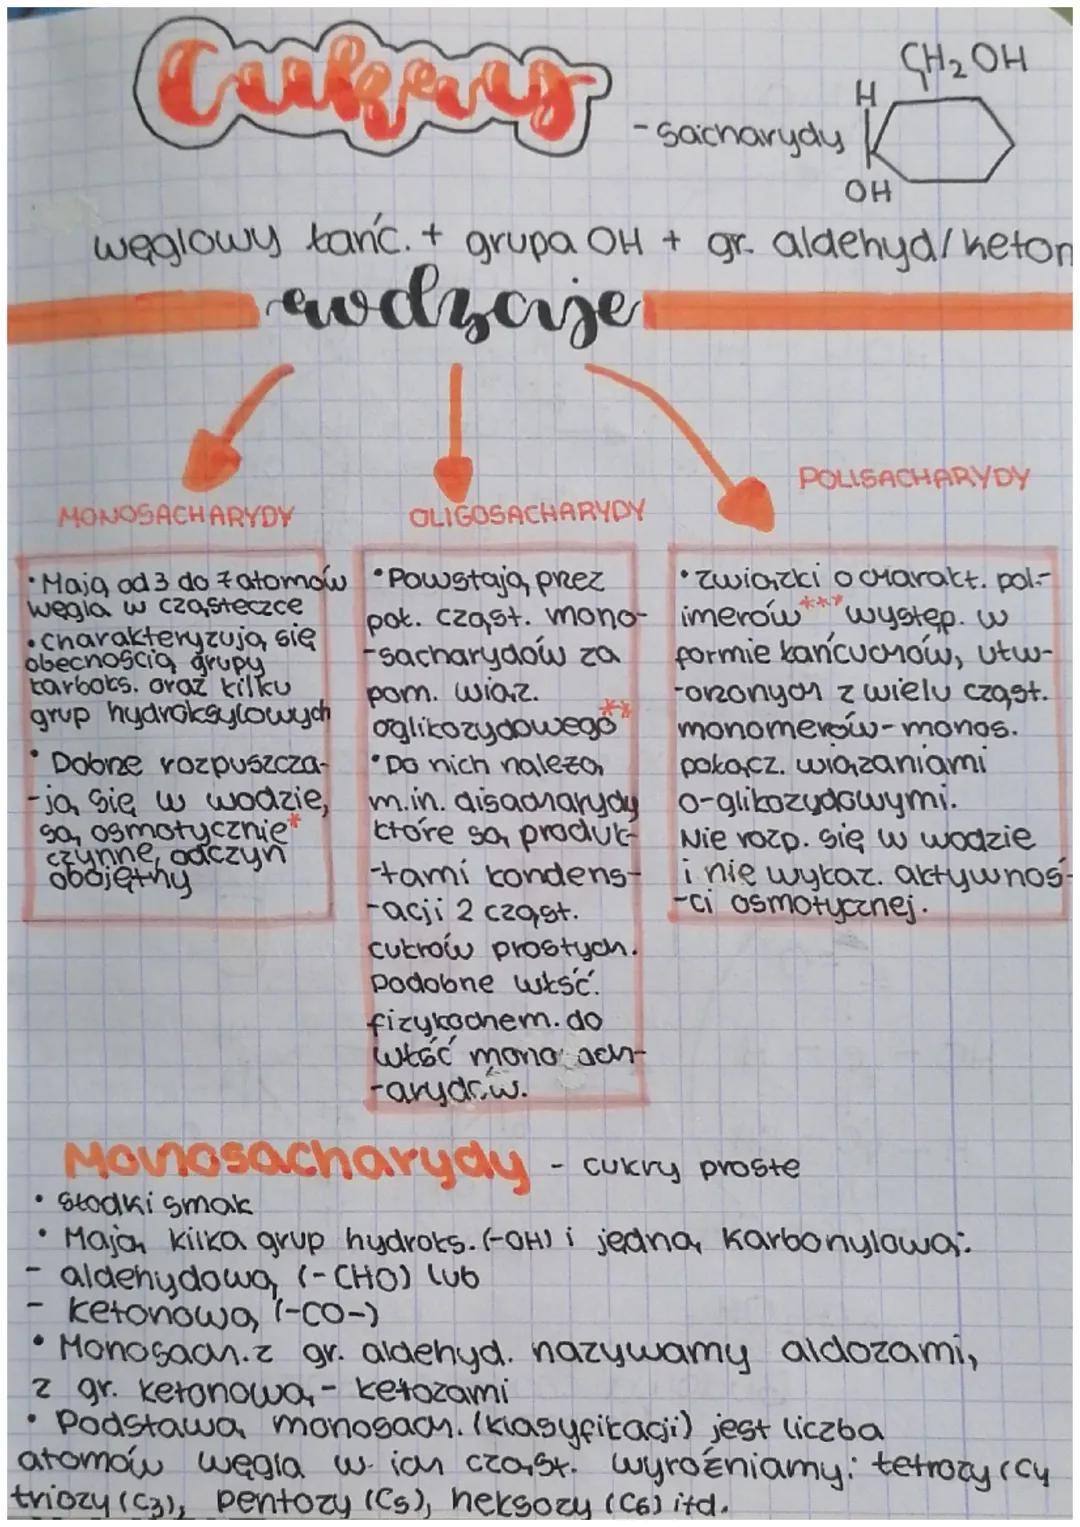 Cukry
CH2OH
H
-sacharydy
OH
węglowy łańc. + grupa OH + gr. aldehyd/keton
rodzaje
MONOSACHARYDY
• Mają od 3 do 7 atomów
węgla w cząsteczce
• charakteryzują się
obecnością grupy
karboks. oraz kilku
grup hydroksylowych
• Dobrze rozpuszcza-
-ją się w wodzie,
są osmotycznie*
czynne, odczyn
obojętny
OLIGOSACHARYDY
• Powstają przez
poł. cząst. mono-
-sacharydów za
pom. wiąz.
oglikozydowego**
• Do nich należą
m.in. disacharydy
które są produk-
-tami kondens-
-acji 2 cząst.
cukrów prostych.
Podobne włść.
fizykochem. do
włść monosach-
-arydów.
POLISACHARYDY
• związki o charakt. pol-
imerów*** występ. w
formie łańcuchów, utw-
-orzonych z wielu cząst.
monomerów-monos.
połącz. wiązaniami
o-glikozydowymi.
Nie rozp. się w wodzie
i nie wykaz. aktywnoś-
-ci osmotycznej.
Monosacharydy - cukry proste
• słodki smak
• Mają kilka grup hydroks. (-OH) i jedną karbonylową:
- aldehydową (-CHO) lub
- ketonową (-CO-)
• Monosach. z gr. aldehyd. nazywamy aldozami,
z gr. ketonową - ketozami
• Podstawą monosach. (klasyfikacji) jest liczba
atomów węgla w ich cząst. wyróżniamy: tetrozy (C4
triozy (C3), pentozy (C5), heksozy (C6) itd.